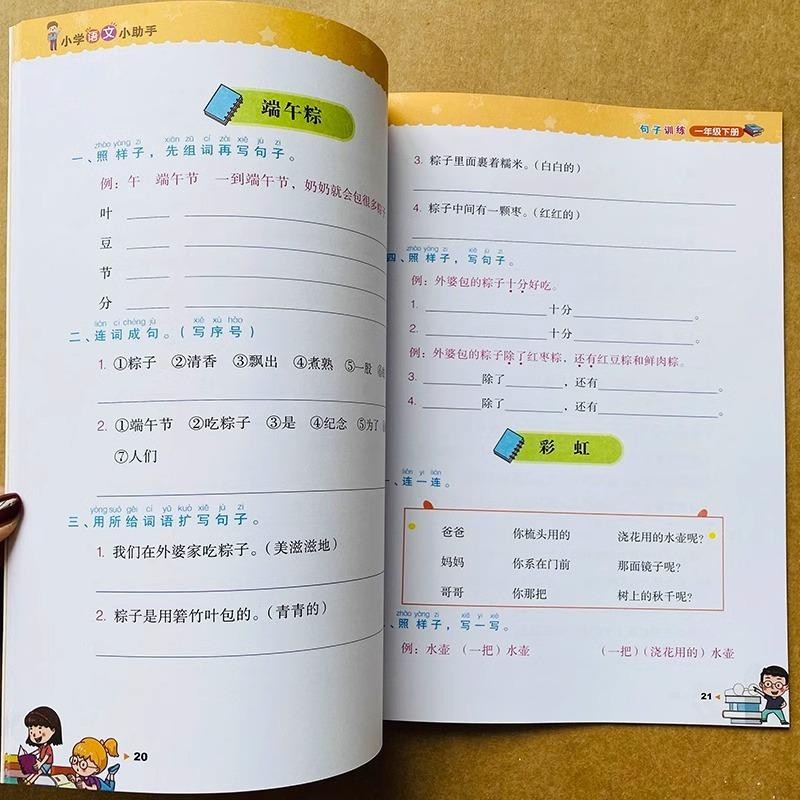 小学语文小助手
端午粽
zhào yàng zi xiān zǔ cí zài xiě jù zi
一、照样子，先组词再写句子。
例：午 端午节 一到端午节，奶奶就会包很多粽子
叶
豆
节
分
lián cí chéng jù xiě xù hào
二、连词成句。（写序号）
1. ①粽子 ②清香 ③飘出 ④煮熟 ⑤一股
2. ①端午节 ②吃粽子 ③是 ④纪念 ⑤为了
⑦人们
yòng suǒ gěi cí yǔ kuò xiě jù zi
三、用所给词语扩写句子。
1. 我们在外婆家吃粽子。（美滋滋地）
2. 粽子是用箬竹叶包的。（青青的）
20
句子训练 一年级下册
3. 粽子里面裹着糯米。（白白的）
4. 粽子中间有一颗枣。（红红的）
zhào yàng zi xiě jù zi
四、照样子，写句子。
例：外婆包的粽子十分好吃。
1. 十分 。
2. 十分 。
例：外婆包的粽子除了红枣粽，还有红豆粽和鲜肉粽。
3. 除了 ，还有 。
4. 除了 ，还有 。
彩虹
lián yì lián
一、连一连。
爸爸 你梳头用的 浇花用的水壶呢？
妈妈 你系在门前 那面镜子呢？
哥哥 你那把 树上的秋千呢？
zhào yàng zi xiě yi xiě
、照样子，写一写。
例：水壶 （一把）水壶 （一把）（浇花用的）水壶
21